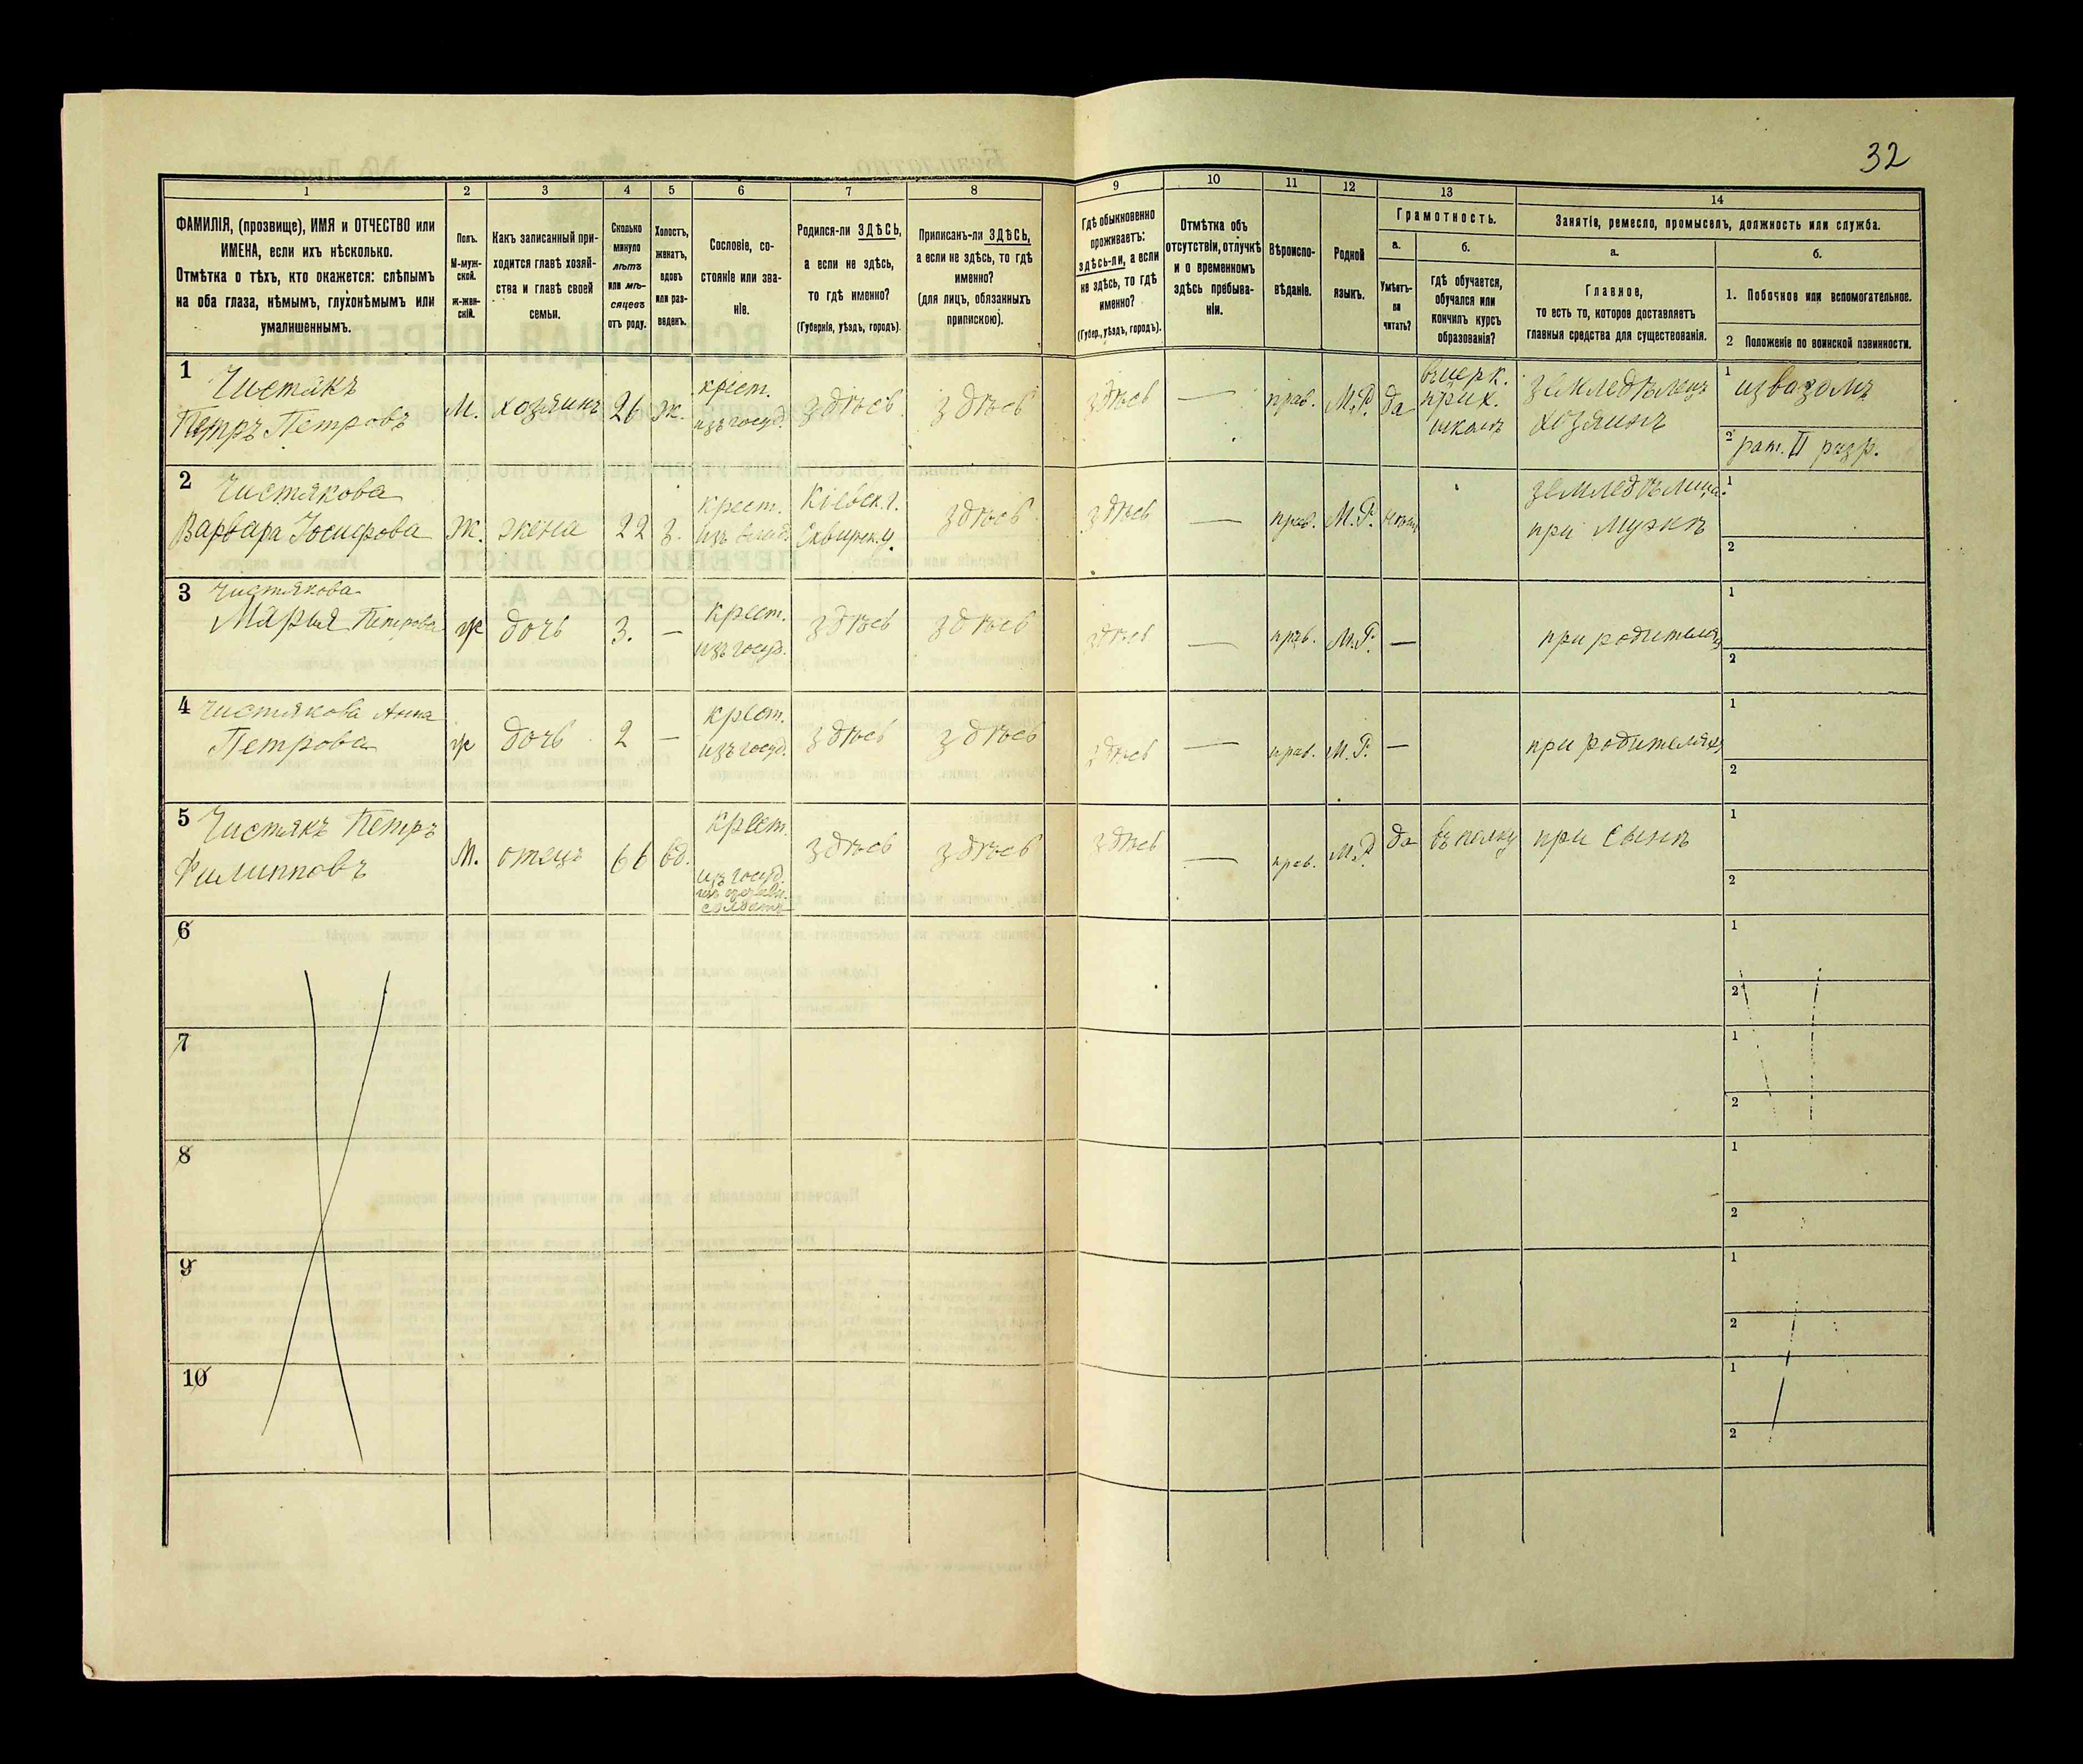 32
1 2 3 4 5 6 7 8 9 10 11 12 13 14
ФАМИЛІЯ, (прозвище), ИМЯ и ОТЧЕСТВО или
ИМЕНА, если ихъ нѣсколько.
Отмѣтка о тѣхъ, кто окажется: слѣпымъ
на оба глаза, нѣмымъ, глухонѣмымъ или
умалишеннымъ.
Полъ.
М-муж-
ской.
Ж-жен-
скій.
Какъ записанный при-
ходится главѣ хозяй-
ства и главѣ своей
семьи.
Сколько
минуло
лѣтъ
или мѣ-
сяцевъ
отъ роду.
Холостъ,
женатъ,
вдовъ
или раз-
веденъ.
Сословіе, со-
стояніе или зва-
ніе.
Родился-ли ЗДѢСЬ,
а если не здѣсь,
то гдѣ именно?
(Губернія, уѣздъ, городъ).
Приписанъ-ли ЗДѢСЬ,
а если не здѣсь, то гдѣ
именно?
(для лицъ, обязанныхъ
припискою).
Гдѣ обыкновенно
проживаетъ:
здѣсь-ли, а если
не здѣсь, то гдѣ
именно?
(Губер., уѣздъ, городъ).
Отмѣтка объ
отсутствіи, отлучкѣ
и о временномъ
здѣсь пребыва-
ніи.
Вѣроиспо-
вѣданіе.
Родной
языкъ.
Грамотность.
а.
Умѣетъ-
ли
читать?
б.
гдѣ обучается,
обучался или
кончилъ курсъ
образованія?
Занятіе, ремесло, промыселъ, должность или служба.
а.
Главное,
то есть то, которое доставляетъ
главныя средства для существованія.
б.
1. Побочное или вспомогательное.
2 Положеніе по воинской повинности.
1 Чистякъ
Петръ Петровъ
М. хозяинъ 26 ж.
крест.
изъ госуд.
здѣсь здѣсь здѣсь — прав. М.Р. да
въ церк.
прих.
школѣ
земледѣлецъ
хозяинъ
1 извозомъ
2 рат. II разр.
2 Чистякова
Варвара Іосифова
Ж. жена 22 з.
крест.
изъ влад.
Кіевск. г.
Сквирск. у.
здѣсь здѣсь — прав. М.Р.
земледѣлица
при мужѣ
1
2
3 Чистякова
Марья Петрова
ж дочь 3. —
крест.
изъ госуд.
здѣсь здѣсь здѣсь — прав. М.Р. —
при родителяхъ
1
2
4 Чистякова Анна
Петрова
ж дочь 2 —
крест.
изъ госуд.
здѣсь здѣсь здѣсь — прав. М.Р. —
при родителяхъ
1
2
5 Чистякъ Петръ
Филипповъ
М. отецъ 66 вд.
крест.
изъ госуд.
здѣсь здѣсь здѣсь — прав. М.Р. да въ полку при сынѣ
1
2
6
1
2
7
1
2
8
1
2
9
1
2
10
1
2